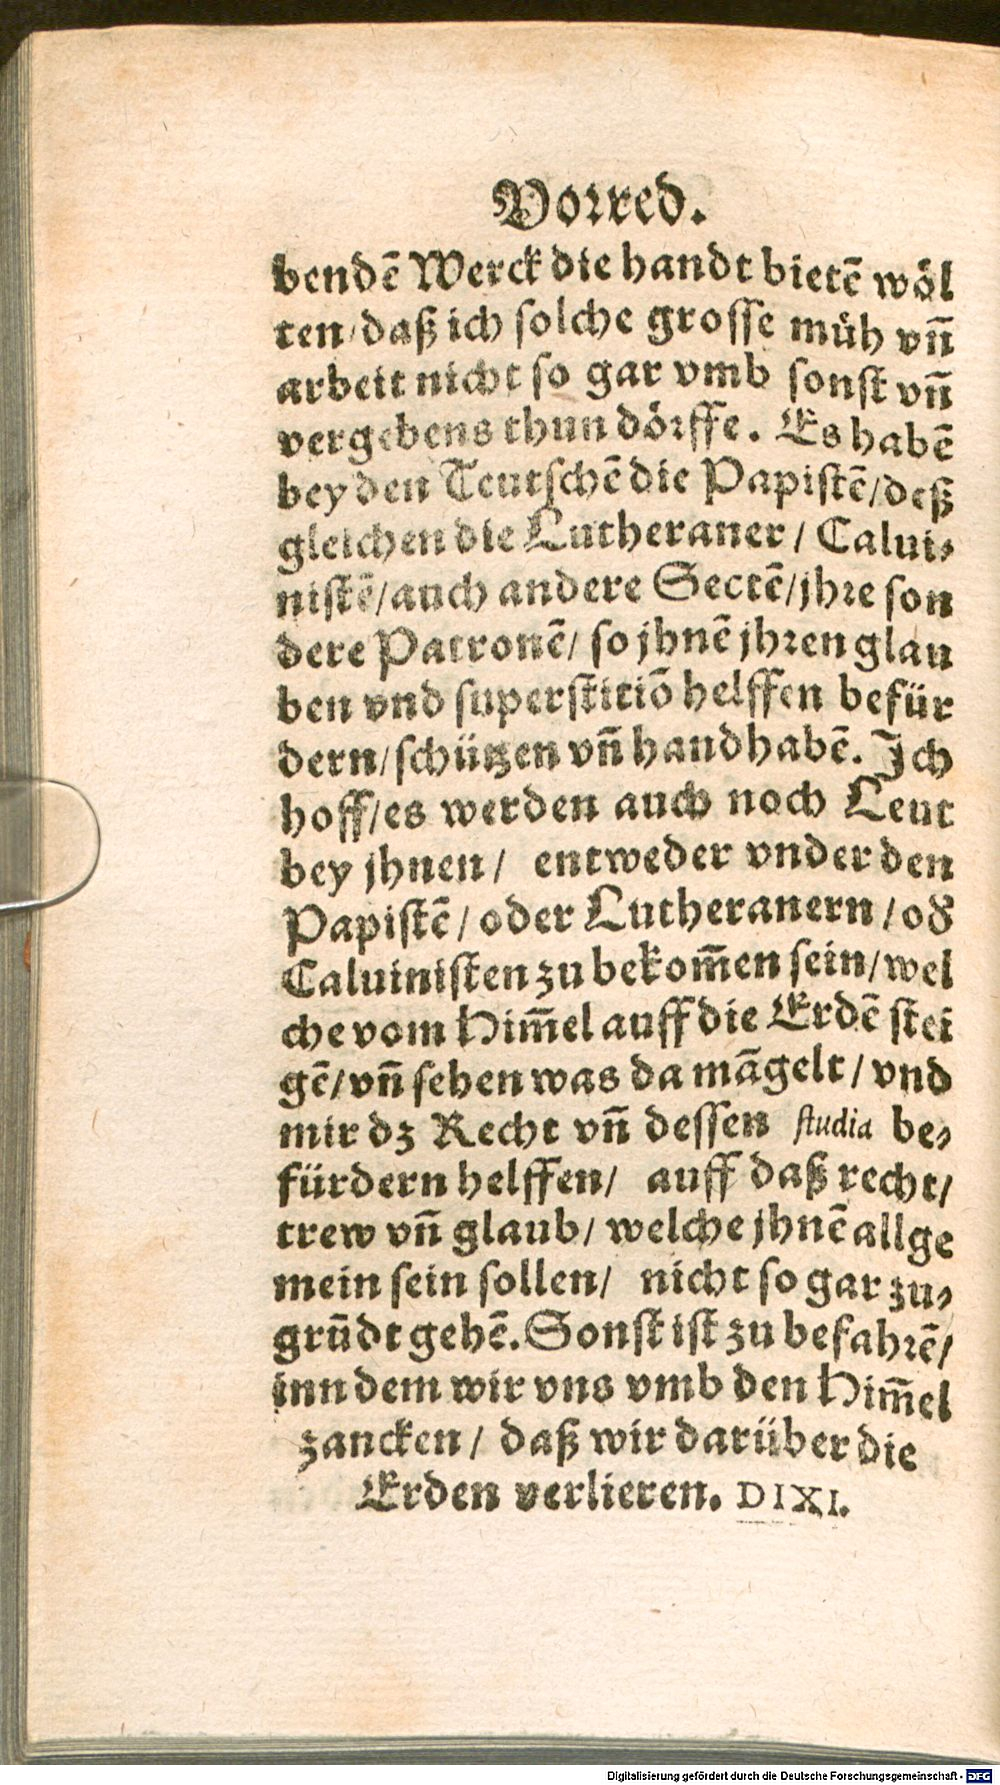 Vorred.
bendē Werck die handt bietē wöl
ten/daß ich solche grosse müh vñ
arbeit nicht so gar vmb sonst vñ
vergebens thun dörffe. Es habē
bey den Teutschē die Papistē/deß
gleichen die Lutheraner/ Calui⸗
nistē/auch andere Sectē/jhre son
dere Patronē/ so jhnē jhren glau
ben vnd superstitiō helffen befür
dern/schützen vñ handhabē. Ich
hoff/es werden auch noch Leut
bey jhnen/ entweder vnder den
Papistē/ oder Lutheranern/od'
Caluinisten zu bekom̃en sein/wel
che vom Him̃el auff die Erdē stei
gē/vñ sehen was da mãgelt/ vnd
mir dz Recht vñ dessen studia be⸗
fürdern helffen/ auff daß recht/
trew vñ glaub/ welche jhnē allge
mein sein sollen/ nicht so gar zu⸗
grũdt gehē. Sonst ist zu befahrē/
inn dem wir vns vmb den Him̃el
zancken/ daß wir darüber die
Erden verlieren. DIXI.
Digitalisierung gefördert durch die Deutsche Forschungsgemeinschaft - DFG